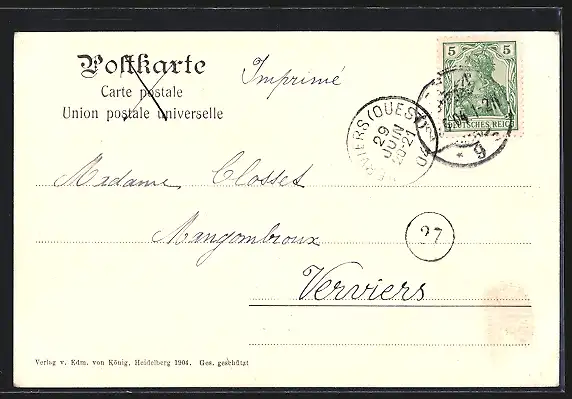 Postkarte
Carte postale
Union postale universelle
Imprimé
5 5
DEUTSCHES REICH
VERVIERS (OUEST)
29
JUIN
20-21
04
* g
Madame Closset
Mangombroux
27
Verviers
Verlag v. Edm. von König, Heidelberg 1904. Ges. geschützt